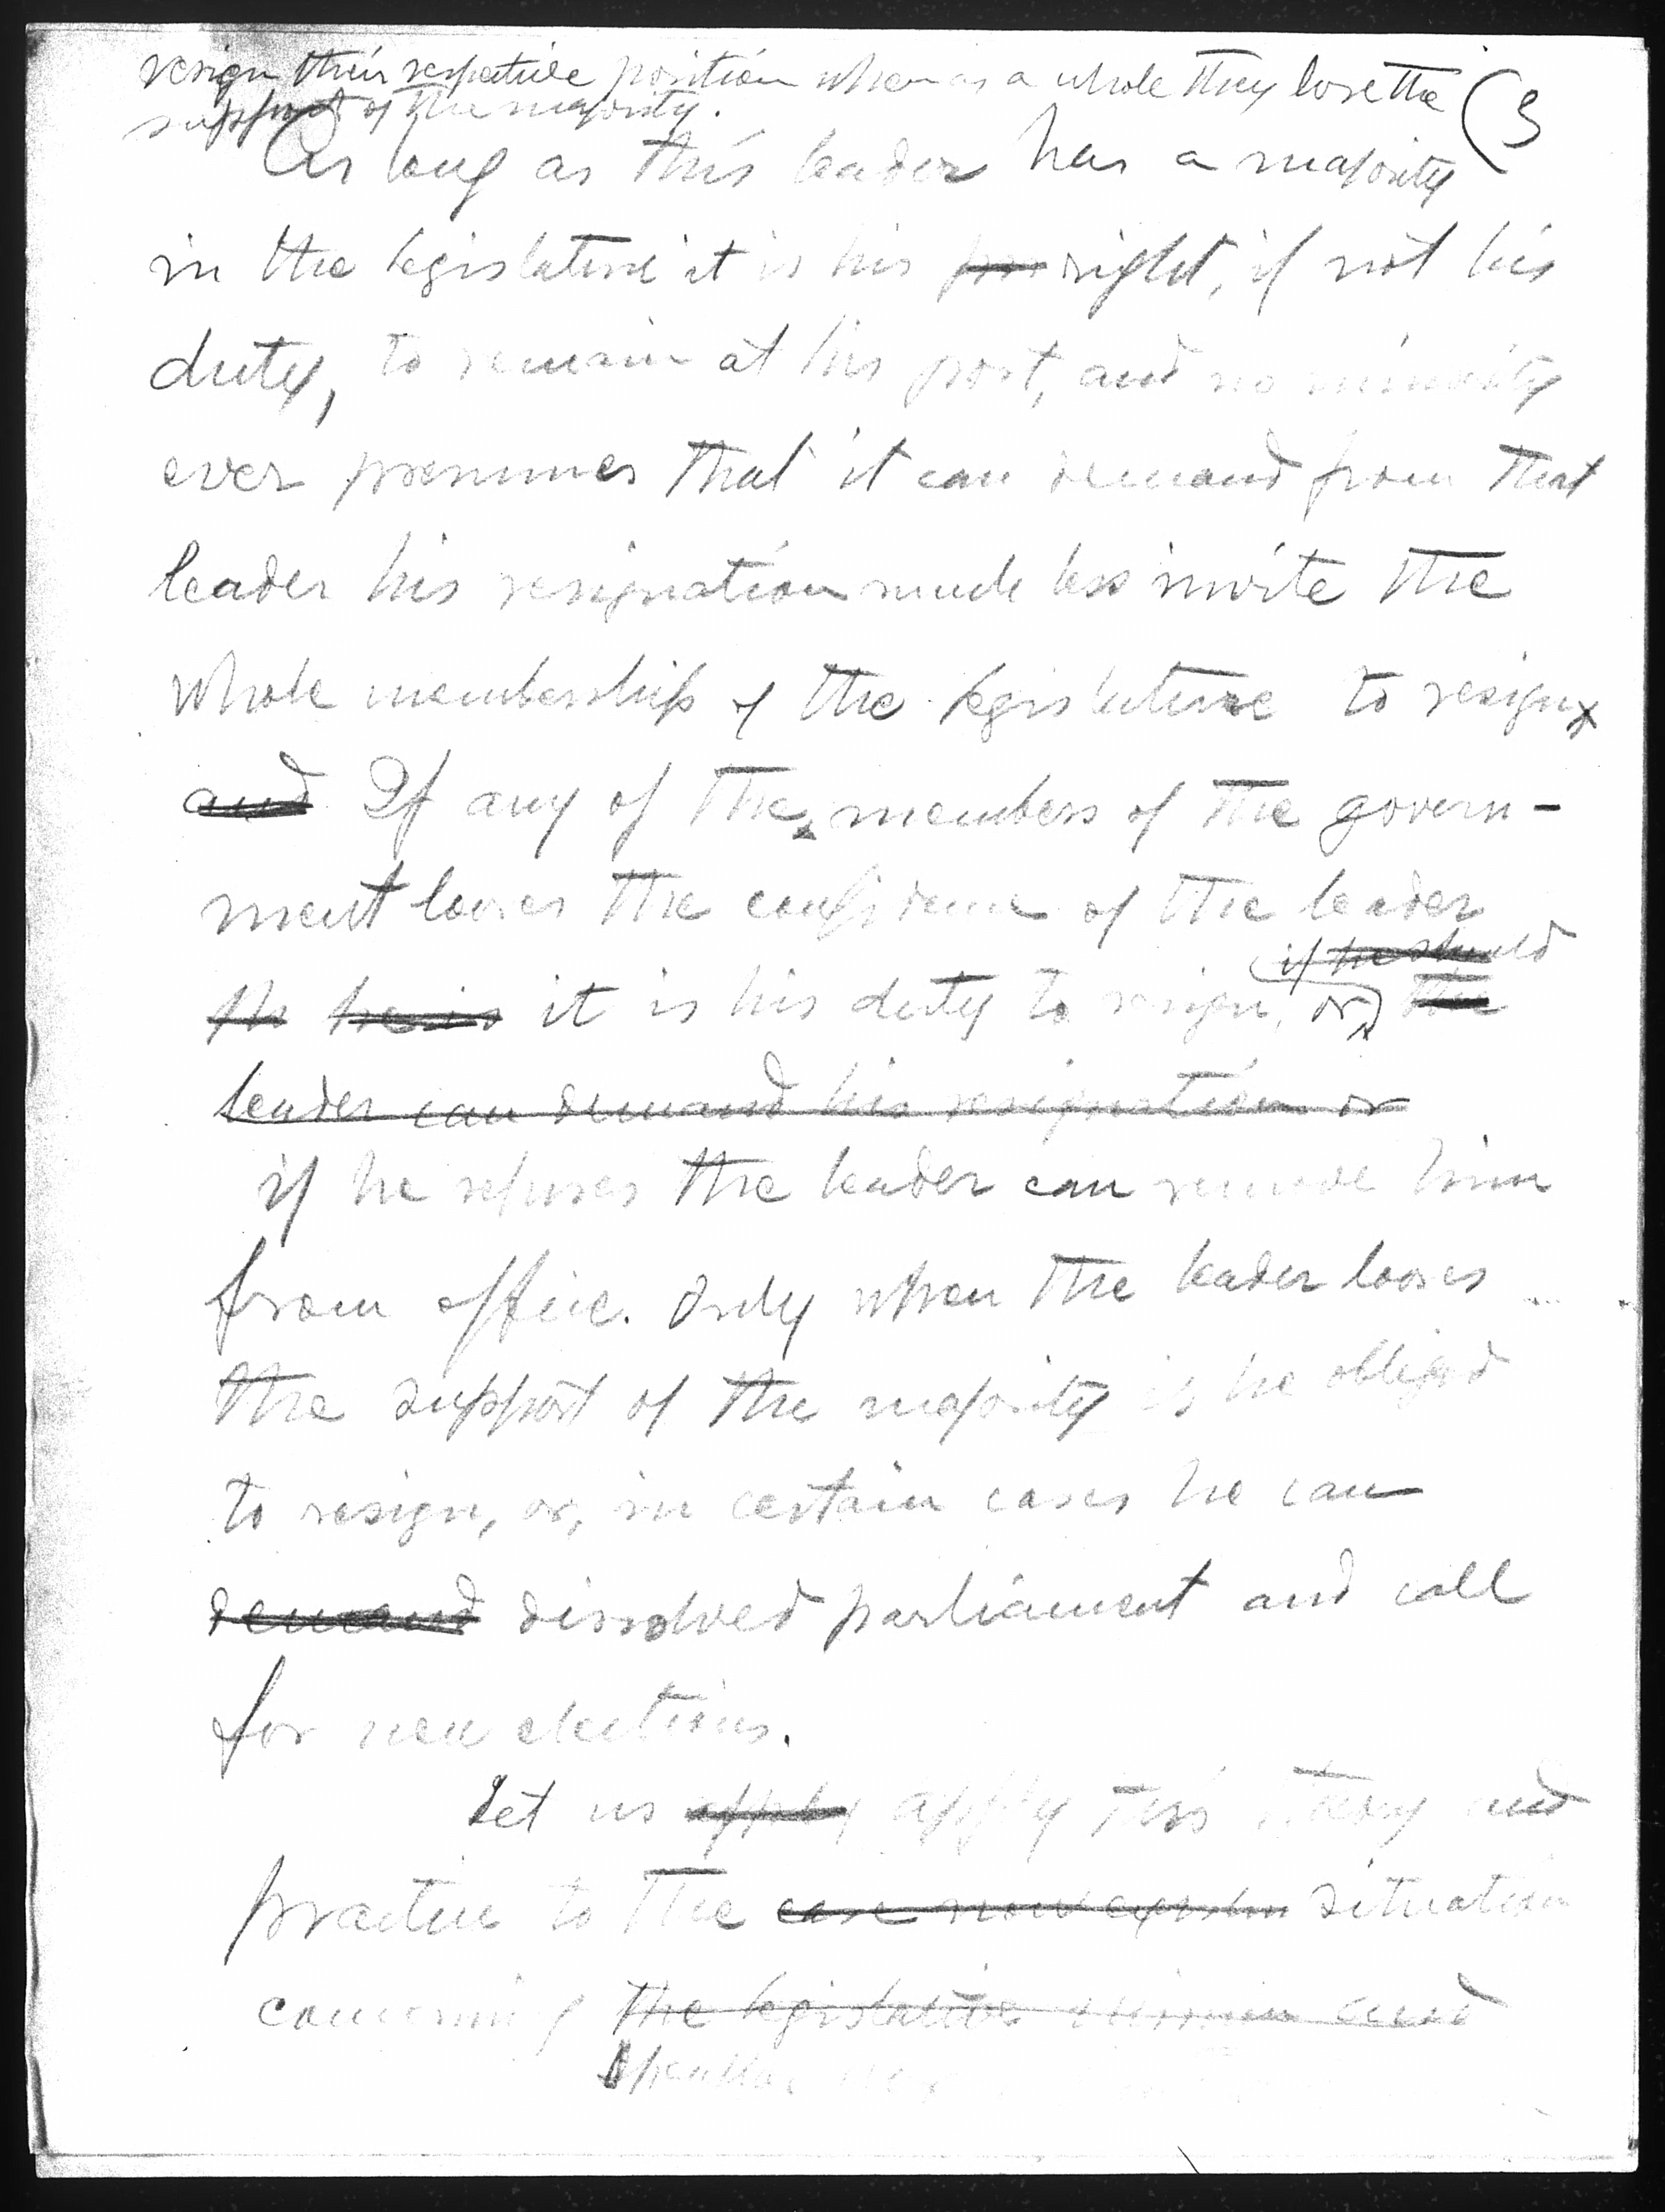 resign their respective position when as a whole they lose the (3
support of the majority.
As long as this leader has a majority
in the legislature it is his right, if not his
duty, to remain at his post, and no minority
ever presumes that it can demand from that
leader his resignation much less invite the
whole membership of the legislature to resign
and If any of the members of the govern-
ment looses the confidence of the leader
if he should
the he is it is his duty to resign, or, the
leader can demand his resignation or
if he refuses the leader can remove him
from office. Only when the leader looses
the support of the majority is he obliged
to resign, or, in certain cases he can
demand dissolved parliament and call
for new elections.
Let us apply apply this theory and
practice to the case now situation
concerning the legislative and
Speaker